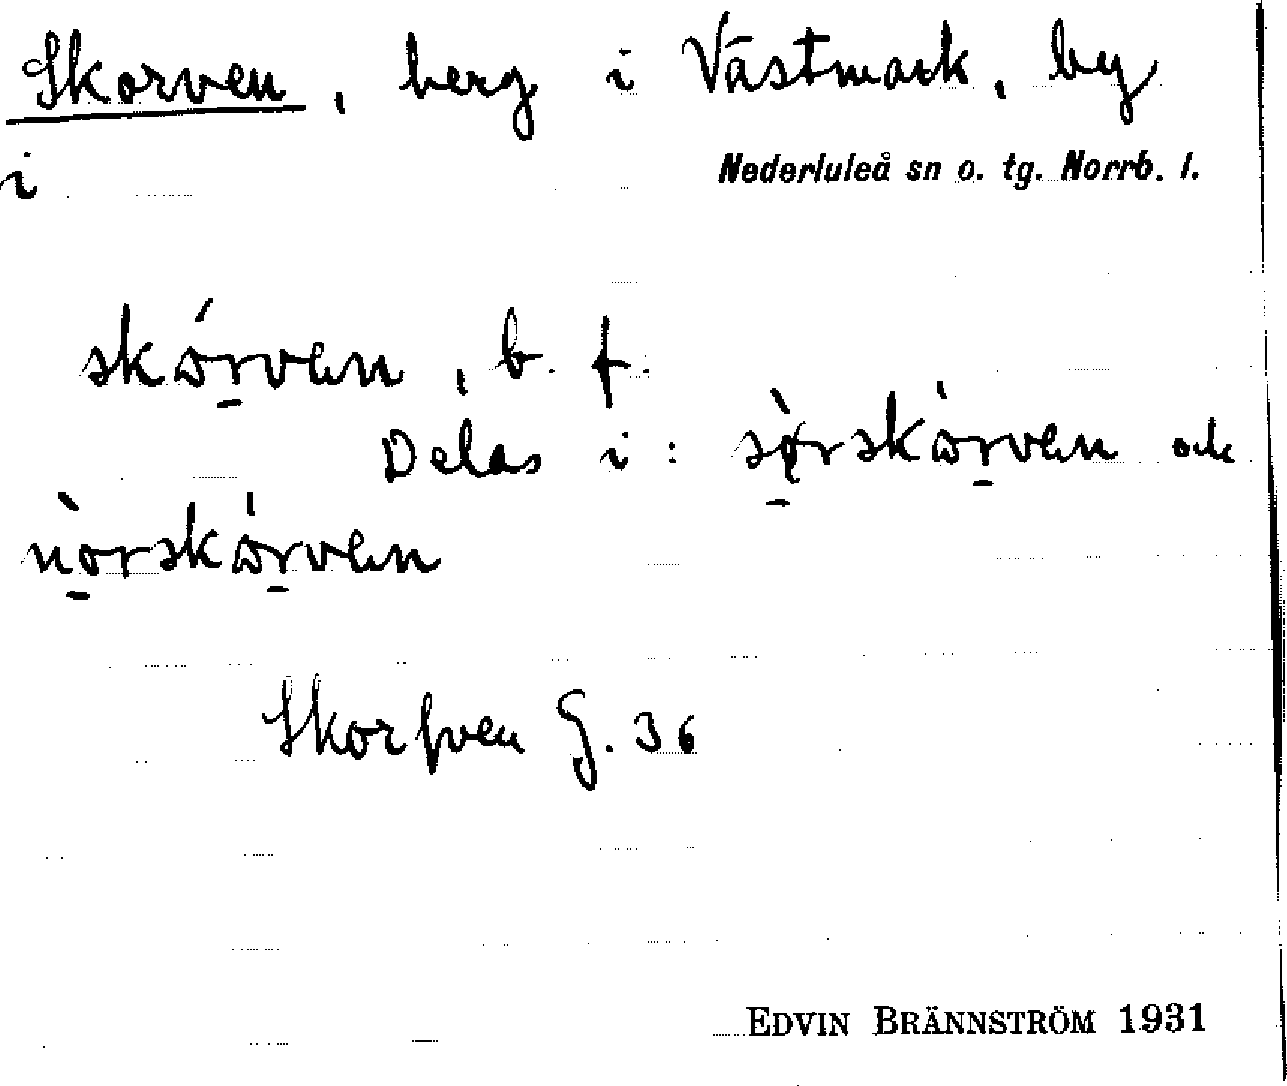 Skorven, berg i Västmark, by
i Nederluleå sn o. tg. Norrb. l.
skórven, b. f.
Delas i: sørskórven och
nòrskórven
Skorfven G. 36
EDVIN BRÄNNSTRÖM 1931